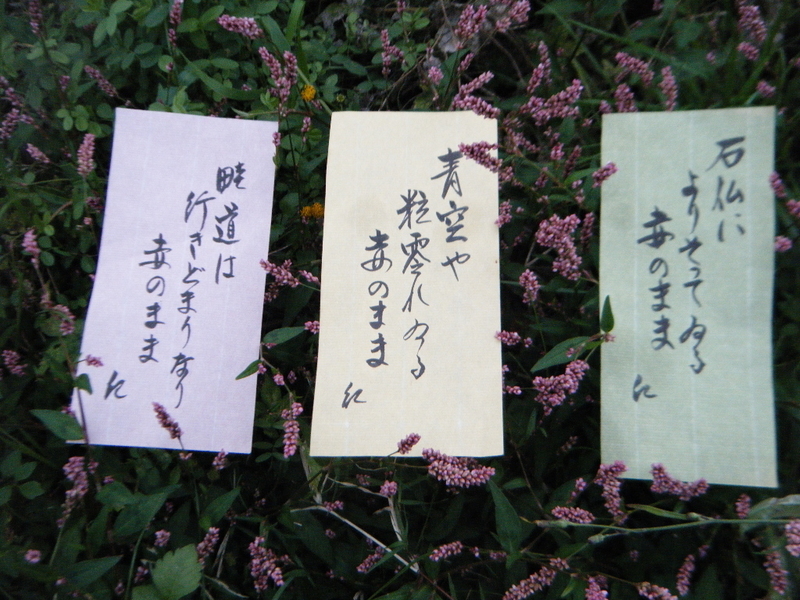 石仏に
よりそってゐる
赤のまま
青空や
粒零れゐる
赤のまま
畦道は
行きどまりなり
赤のまま